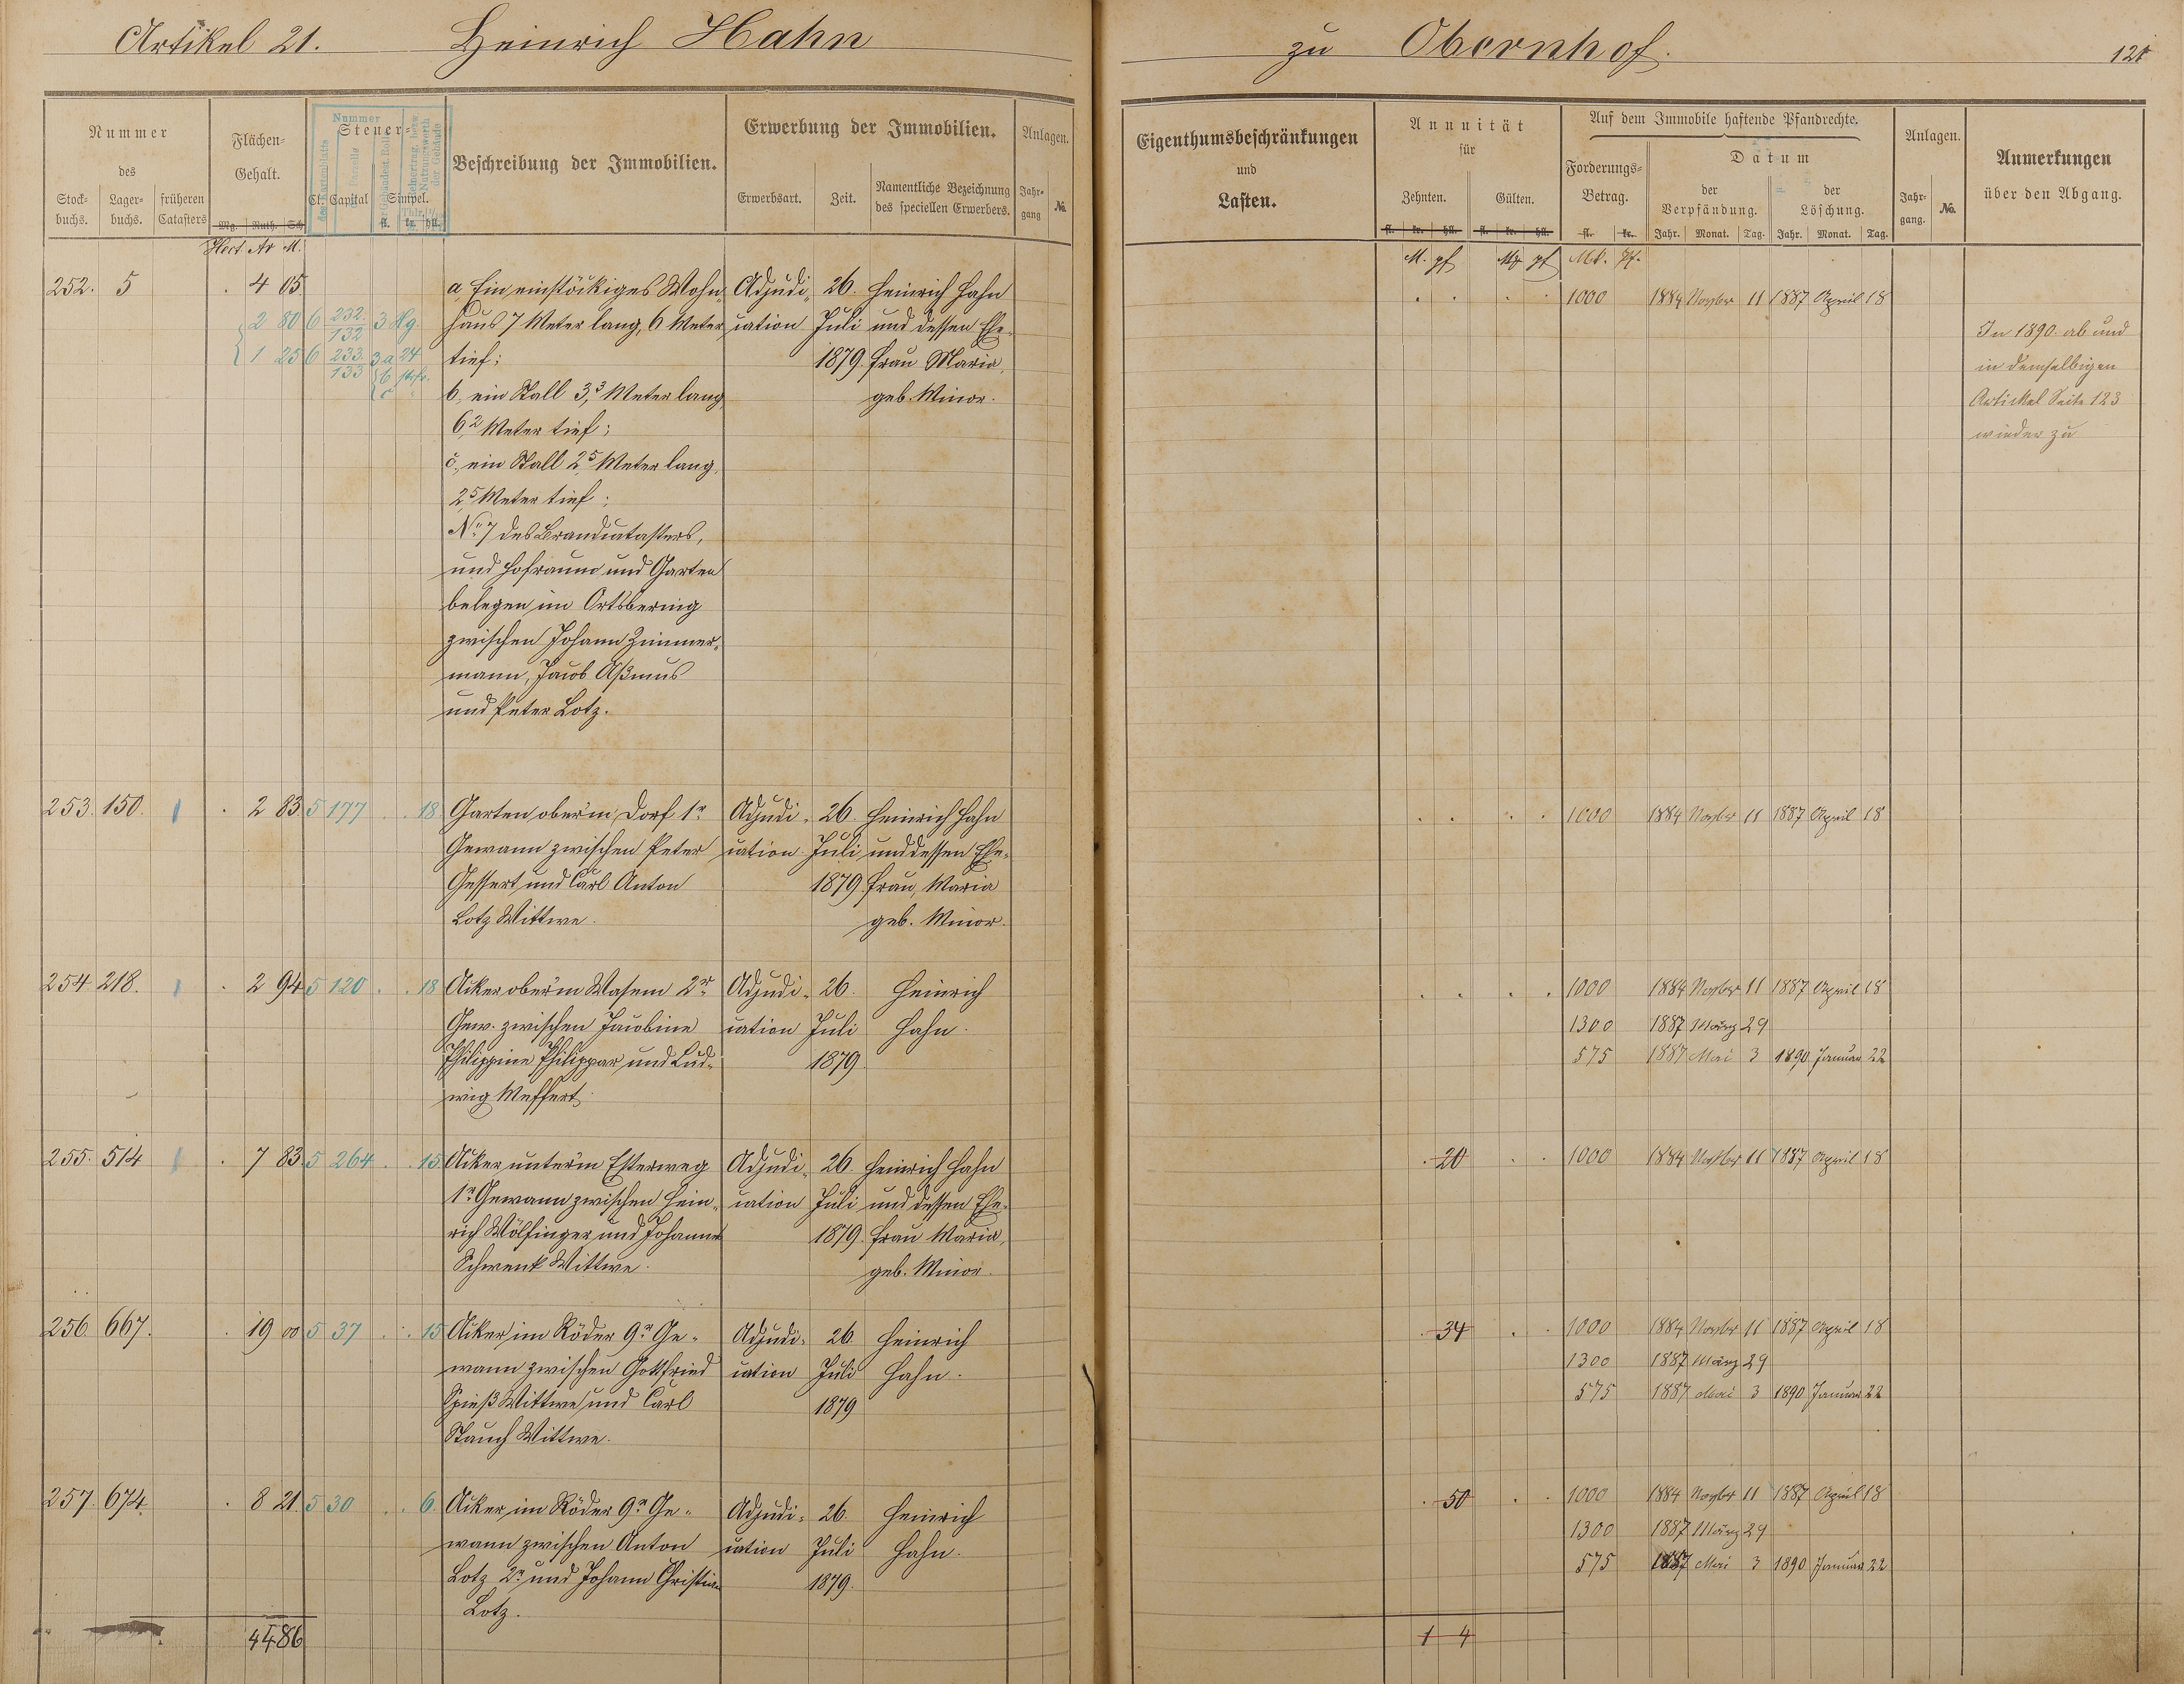 Artikel 21. Heinrich Hahn zu Obernhof. 121
Nummer des
Stock-buchs. Lager-buchs. früheren Catasters
Flächen-Gehalt.
Mg. Ruth. Sch.
Hect. Ar M.
Steuer-
Cl. Capital Simpel.
fl. kr. hll.
Nummer
des Kartenblatts
der Parzelle
Beschreibung der Immobilien.
Erwerbung der Immobilien.
Erwerbsart. Zeit. Namentliche Bezeichnung des speciellen Erwerbers.
Anlagen.
Jahr-gang No.
Eigenthumsbeschränkungen
und
Lasten.
Annuität
für
Zehnten. Gülten.
fl. kr. hll. fl. kr. hll.
M. pf M. pf
Auf dem Immobile haftende Pfandrechte.
Forderungs-Betrag.
fl. kr.
Mk. Pf.
Datum
der Verpfändung. der Löschung.
Jahr. Monat. Tag. Jahr. Monat. Tag.
Anlagen.
Jahr-gang. No.
Anmerkungen
über den Abgang.
252. 5 . 4 05 a, Ein einstöckiges Wohn- Adjudi- 26. Heinrich Hahn . . . . 1000 1884 Novbr 11 1887 April 18
2 80 6 232/132 3 Hg. haus 7 Meter lang, 6 Meter cation Juli und dessen Ehe-
1 25 6 233/133 3 a 24 tief; 1879. frau Maria,
b c b, ein Stall 3,3 Meter lang geb. Minor.
6,2 Meter tief;
c, ein Stall 2,5 Meter lang,
2,5 Meter tief;
No 7 des Brandcatasters,
und Hofraum und Garten
belegen im Ortsbering
zwischen Johann Zimmer-
mann, Jacob Aßmus
und Peter Lotz.
In 1890 ab und
in demselbigen
Artickel Seite 123
wieder zu
253. 150. . 2 83 5 177 . . 18 Garten ober'm Dorf 1r Adjudi- 26. Heinrich Hahn . . . . 1000 1884 Novbr 11 1887 April 18
Gewann zwischen Peter cation Juli und dessen Ehe-
Gessert und Carl Anton 1879 frau, Maria
Lotz Wittwe. geb. Minor.
254 218. . 2 94 5 120 . . 18 Acker ober'm Wasem 2r Adjudi- 26. Heinrich . . . . 1000 1884 Novbr 11 1887 April 18
Gew. zwischen Jacobine cation Juli Hahn. 1300 1887 März 29
Philippine Philippar und Lud- 1879 575 1887 Mai 3 1890 Januar 22
wig Meffert.
255. 514 . 7 83 5 264 . . 15 Acker unter'm Esterweg Adjudi- 26 Heinrich Hahn . 20 . . 1000 1884 Novbr 11 1887 April 18
1r Gewann zwischen Hein- cation Juli und dessen Ehe-
rich Wölfinger und Johannes 1879. frau Maria,
Schwenk Wittwe. geb. Minor.
256 667. . 19 00 5 37 . . 15 Acker im Röder 9r Ge- Adjudi- 26 Heinrich . 34 . . 1000 1884 Novbr 11 1887 April 18
wann zwischen Gottfried cation Juli Hahn. 1300 1887 März 29
Spieß Wittwe und Carl 1879 575 1887 Mai 3 1890 Januar 22
Stauch Wittwe.
257. 674. . 8 21. 5 30 . . 6. Acker im Röder 9r Ge- Adjudi- 26. Heinrich . 50 . . 1000 1884 Novbr 11 1887 April 18
wann zwischen Anton cation Juli Hahn. 1300 1887 März 29
Lotz 2r und Johann Christian 1879. 575 1887 Mai 3 1890 Januar 22
Lotz.
44 86 1 4